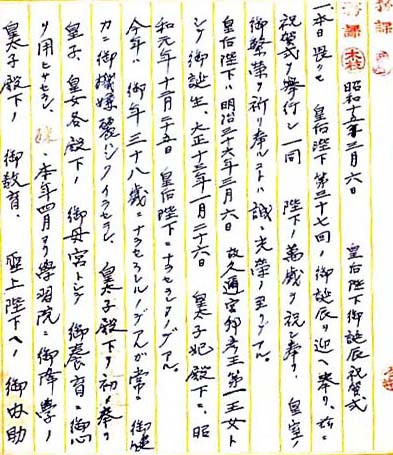 昭和十五年三月六日 皇后陛下御誕辰祝賀式
一、本日畏クモ 皇后陛下第三十七回ノ御誕辰ヲ迎ヘ奉リ、茲ニ
祝賀式ヲ挙行シ一同 陛下ノ萬歳ヲ祝シ奉リ、皇室ノ
御繁栄ヲ祈リ奉ルコトハ誠ニ光栄ノ至リデアル。
皇后陛下ハ明治三十六年三月六日 故久邇宮邦彦王第一王女ト
シテ御誕生、大正十三年一月二十六日 皇太子妃殿下ニ、昭
和元年十二月二十五日 皇后陛下ニナラセラレタノデアル。
今年ハ御年三十八歳ニナラセラレルノデアルガ常ニ御健
カニ御機嫌麗ハシクイラセラレ 皇太子殿下ヲ初メ奉リ
皇子、皇女各殿下ノ御母宮トシテ御養育ニ御心
ヲ用ヒサセラレ 本年四月ヨリ学習院ニ御入学ノ
皇太子殿下ノ御教育、聖上陛下ヘノ御内助